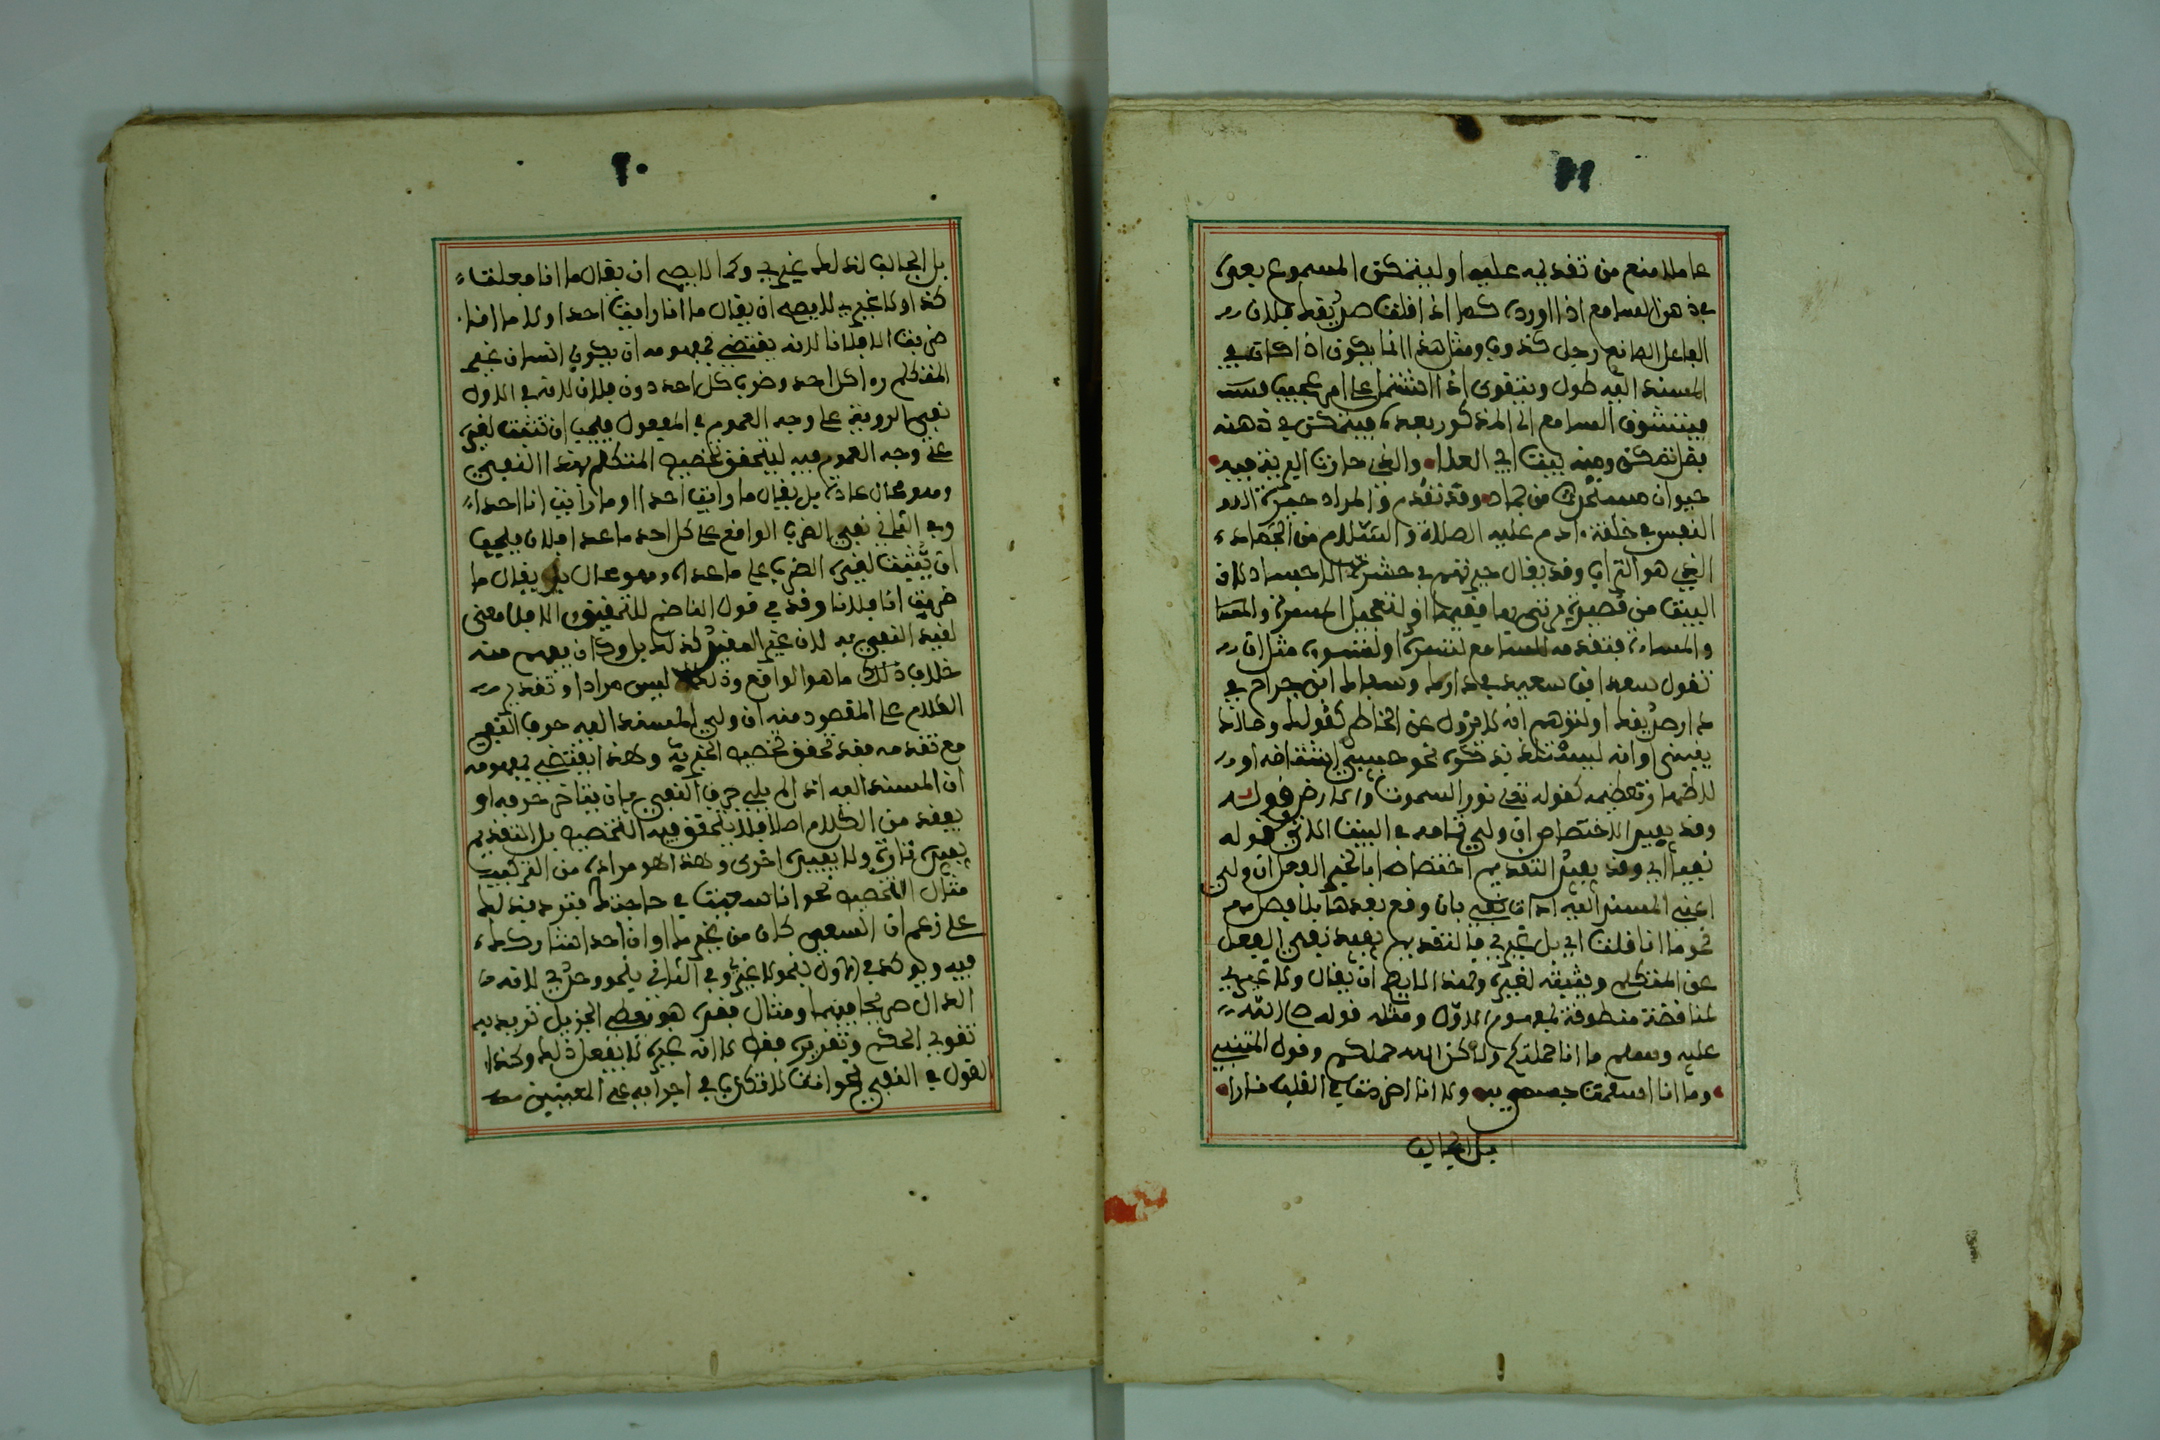 عاملا منع من تقديمه عليه او ليتمكن المسموع يعني
في ذهن السامع اذا اورده كما اذا قلت صديقك فلان
الفاعل الصانع رجل صدوق ومثل هذا انما يكون اذا كان في
المسند اليه طول ويتقوى اذا اشتمل على امر عجيب
فيتشوف السامع الى المذكور بعده فيتمكن في ذهنه
فضل تمكن ومنه بيت ابي العلا والذي حارت البرية فيه
حيوان مستحدث من جماد وقد تقدم والمراد حيرة
النفس في خلقة ءادم عليه الصلاة والسلام من الجماد
الذي هو التراب وقد يقال حيرتهم في حشر الاجساد لان
البيت من قصيدة رثى بها فقيها او لتعجيل المسرة
والمساءة فتقدمه للسامع لتسره او لتسوءه مثل ان
تقول سعد ابن سعيد في دارك وسفاك ابن جراح في
دار صديقك او لتوهم انه لا يزول عن الخاطر كقولك
او انه ليستلذ بذكره نحو حبيبي او
لاظهار تعظيمه كقوله تعلى نور السموت والارض قوله
وقد يفيد الاختصاص ان ولي قسامه في البيت الاتي قوله
نفيا اي وقد يفيد التقديم اختصاصا بالخبر الفعل ان ولي
اعني المسند اليه اداة نفي بان وقع بعدها بلا فصل
نحو ما انا قلت اي بل غيري فالتقديم يفيد نفي الفعل
عن المتكلم ويثبته لغيره ولهذا لا يصح ان يقال ولا غيري
لمناقضة منطوقه لمفهوم الاول ومثله قوله صلى الله
عليه وسلم ما انا حملتكم ولكن الله حملكم وقول المتنبي
وما انا اسقمت جسمي به ولا انا اضرمت في القلب نارا
بل الجالب
٢٠
بل الجالب لذلك غيري وكما لا يصح ان يقال ما انا فعلت
كذا ولا غيري لا يصح ان يقال ما انا رايت احدا ولا ما انا
ضربت الا فلانا لانه يقتضي مفهومه ان يكون انسان غير
المتكلم رءا كل احد وضرب كل احد دون فلان لانه في الاول
نفي الروية على وجه العموم في المفعول فيجب ان تثبت لغيره
على وجه العموم فيه ليتحقق تخصيص المتكلم بهذا النفي
وهو محال عادة بل يقال ما رايت احدا او ما رأيت انا احدا
وفي الثاني نفي الضرب الواقع على كل احد ما عدا فلان فيجب
ان يثبت لغيره الضرب على ما عداه وهو محال بل يقال ما
ضربت انا فلانا وقد في قول الناظم للتحقيق والا فلا معنى
لقيد النفي به لان غير المفيد كذلك بل وكان يفهم منه
خلاف ذلك ما هو الواقع وذلك ليس مرادا وتقدم
الكلام على المقصود منه ان ولي المسند اليه حرف النفي
مع تقدمه فقد تحقق تخصيص الخبر به وهذا يقتضي مفهومه
ان المسند اليه اذا لم يلي حرف النفي بان يتاخر حرفه او
يفقد من الكلام اصلا فلا يتحقق فيه التخصيص بل التقديم
يفيده تارة ولا يفيده اخرى وهذا هو مراده من التركيب
مثال التخصيص نحو انا سعيت في حاجتك فترد بذلك
على زعم ان السعي كان من غيرك او ان احدا شاركك
فيه ويوكد في الاول بنحو لا غيري وفي الثاني بنحو وحدي لانه
الدال صريحا فيهما ومثال غيره هو يعطي الجزيل تريد به
تقوي الحكم وتقريره فقط لا انه غيره لا يفعل ذلك وكذا
القول في النفي نحو انت لا تكذب في اجرايه على المعنيين